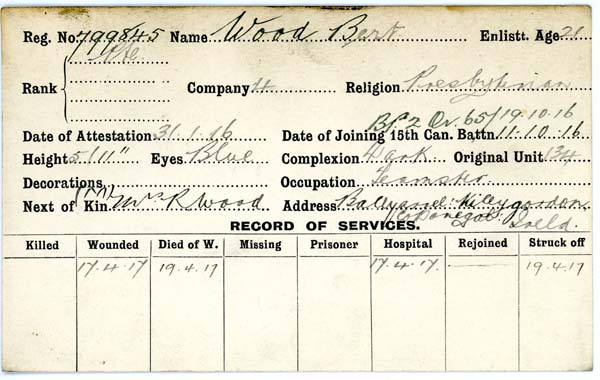 Reg. No. 799845 Name Wood Bert Enlistt. Age 21
Rank Pte Company 4 Religion Presbyterian
B.P.2 Or. 65/19.10.16
Date of Attestation 31.1.16 Date of Joining 15th Can. Battn. 11.10.16
Height 5/11" Eyes Blue Complexion Dark Original Unit 134
Decorations Occupation Teamster
Next of Kin Mrs R Wood Address
Donegal Ireld.
RECORD OF SERVICES.
Killed Wounded Died of W. Missing Prisoner Hospital Rejoined Struck off
17.4.17 19.4.17 17.4.17. 19.4.17